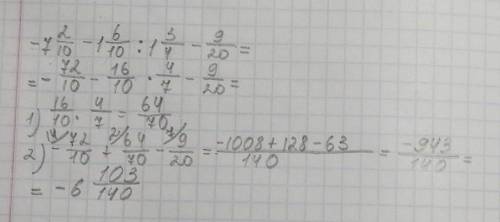 -7 2/10 - 1 6/10 : 1 3/4 - 9/20 =
= - 72/10 - 16/10 · 4/7 - 9/20 =
1) 16/10 · 4/7 = 64/70
2) 14/ -72/10 + 2/ 64/70 - 7/ 9/20 = -1008 + 128 - 63 / 140 = -943/140 =
= -6 103/140